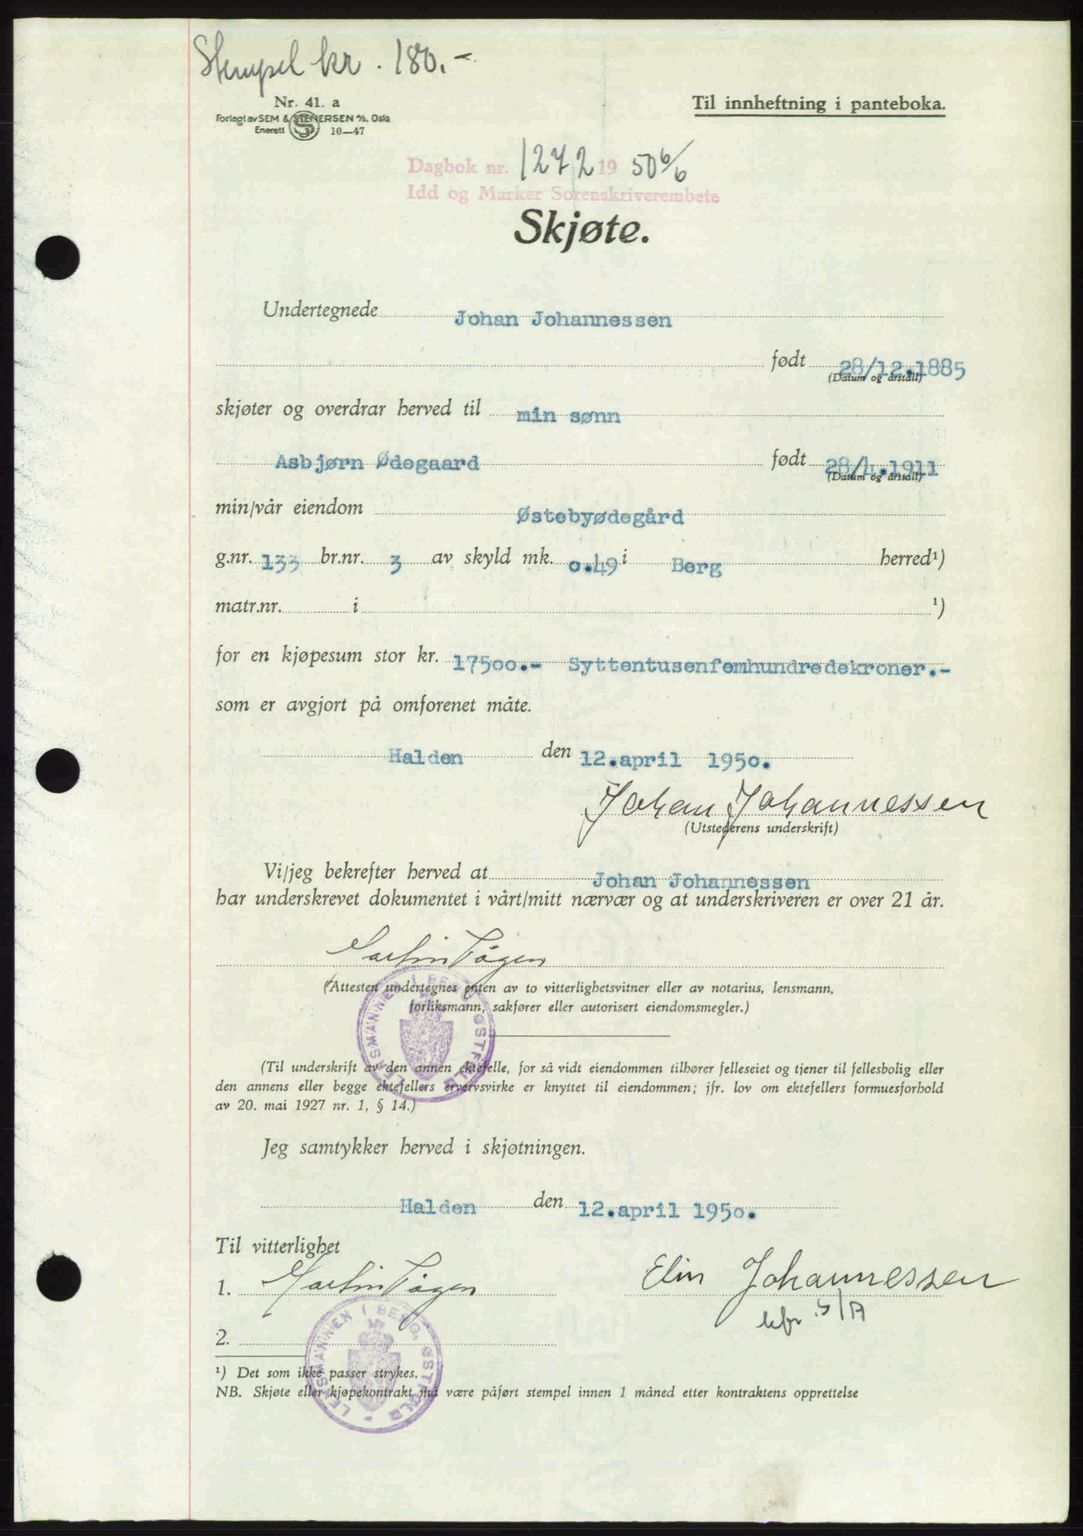 Stempel kr. 180.-
Nr. 41. a
Forlagt av SEM & STENERSEN A/S, Oslo
Enerett 10—47
Til innheftning i panteboka.
Dagbok nr. 1272 19 50 6/6
Idd og Marker Sorenskriverembete
Skjøte.
Undertegnede Johan Johannessen
født 28/12.1885
(Datum og årstall)
skjøter og overdrar herved til min sønn
Asbjørn Ødegaard født 28/4.1911
(Datum og årstall)
min/vår eiendom Østebyødegård
g.nr. 133 br.nr. 3 av skyld mk. 0.49 i Berg herred¹)
matr.nr. i ¹)
for en kjøpesum stor kr. 17500.- Syttentusenfemhundredekroner.-
som er avgjort på omforenet måte.
Halden den 12.april 1950.
Johan Johannessen
(Utstederens underskrift)
Vi/jeg bekrefter herved at Johan Johannessen
har underskrevet dokumentet i vårt/mitt nærvær og at underskriveren er over 21 år.
Martin Tågen
(Attesten undertegnes enten av to vitterlighetsvitner eller av notarius, lensmann,
forliksmann, sakfører eller autorisert eiendomsmegler.)
LENSMANNEN I BERG, ØSTFOLD
(Til underskrift av den annen ektefelle, for så vidt eiendommen tilhører felleseiet og tjener til fellesbolig eller
den annens eller begge ektefellers ervervsvirke er knyttet til eiendommen; jfr. lov om ektefellers formuesforhold
av 20. mai 1927 nr. 1, § 14.)
Jeg samtykker herved i skjøtningen.
Halden den 12.april 1950.
Til vitterlighet
1. Martin Tågen Elin Johannessen
2.
LENSMANNEN I BERG, ØSTFOLD
¹) Det som ikke passer strykes.
NB. Skjøte eller kjøpekontrakt må være påført stempel innen 1 måned etter kontraktens opprettelse